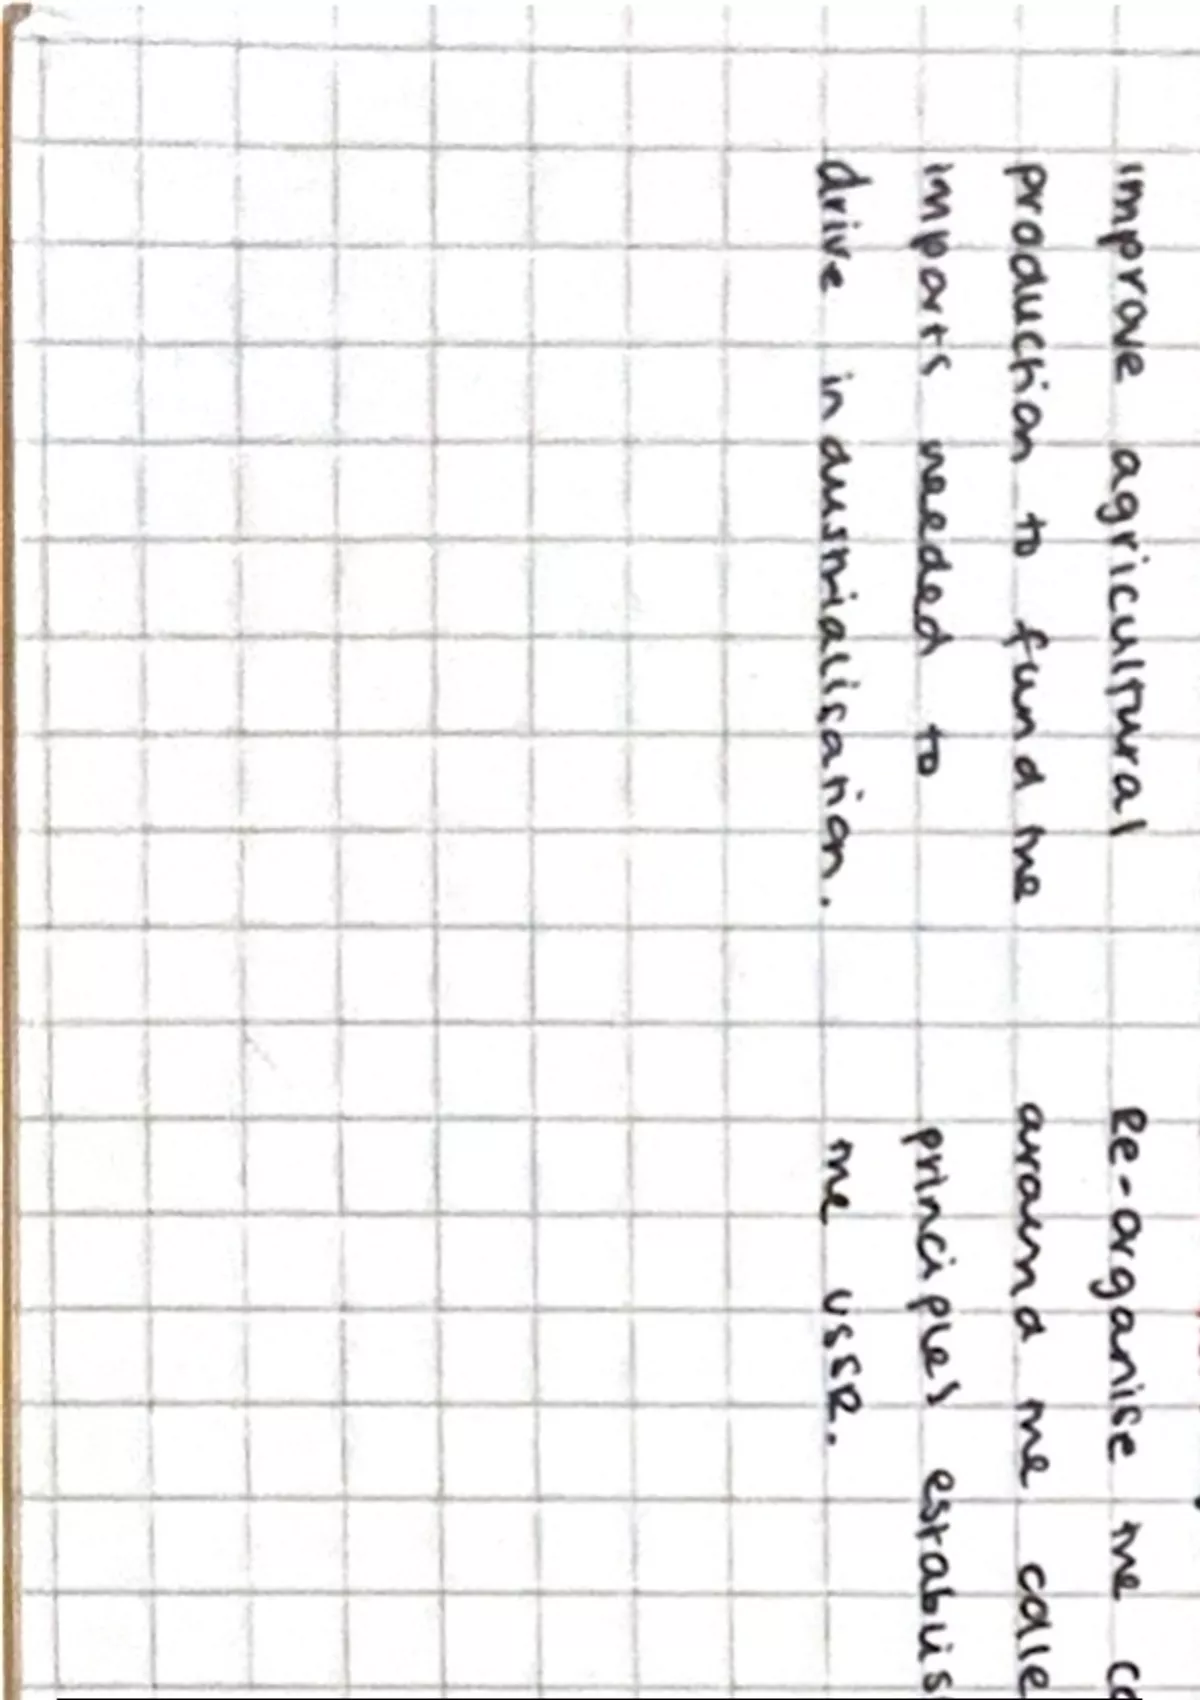 improve agricultural
production to fund the
imports needed to
drive industrialisation.
Re-organise the
around the
principles
the USSR.